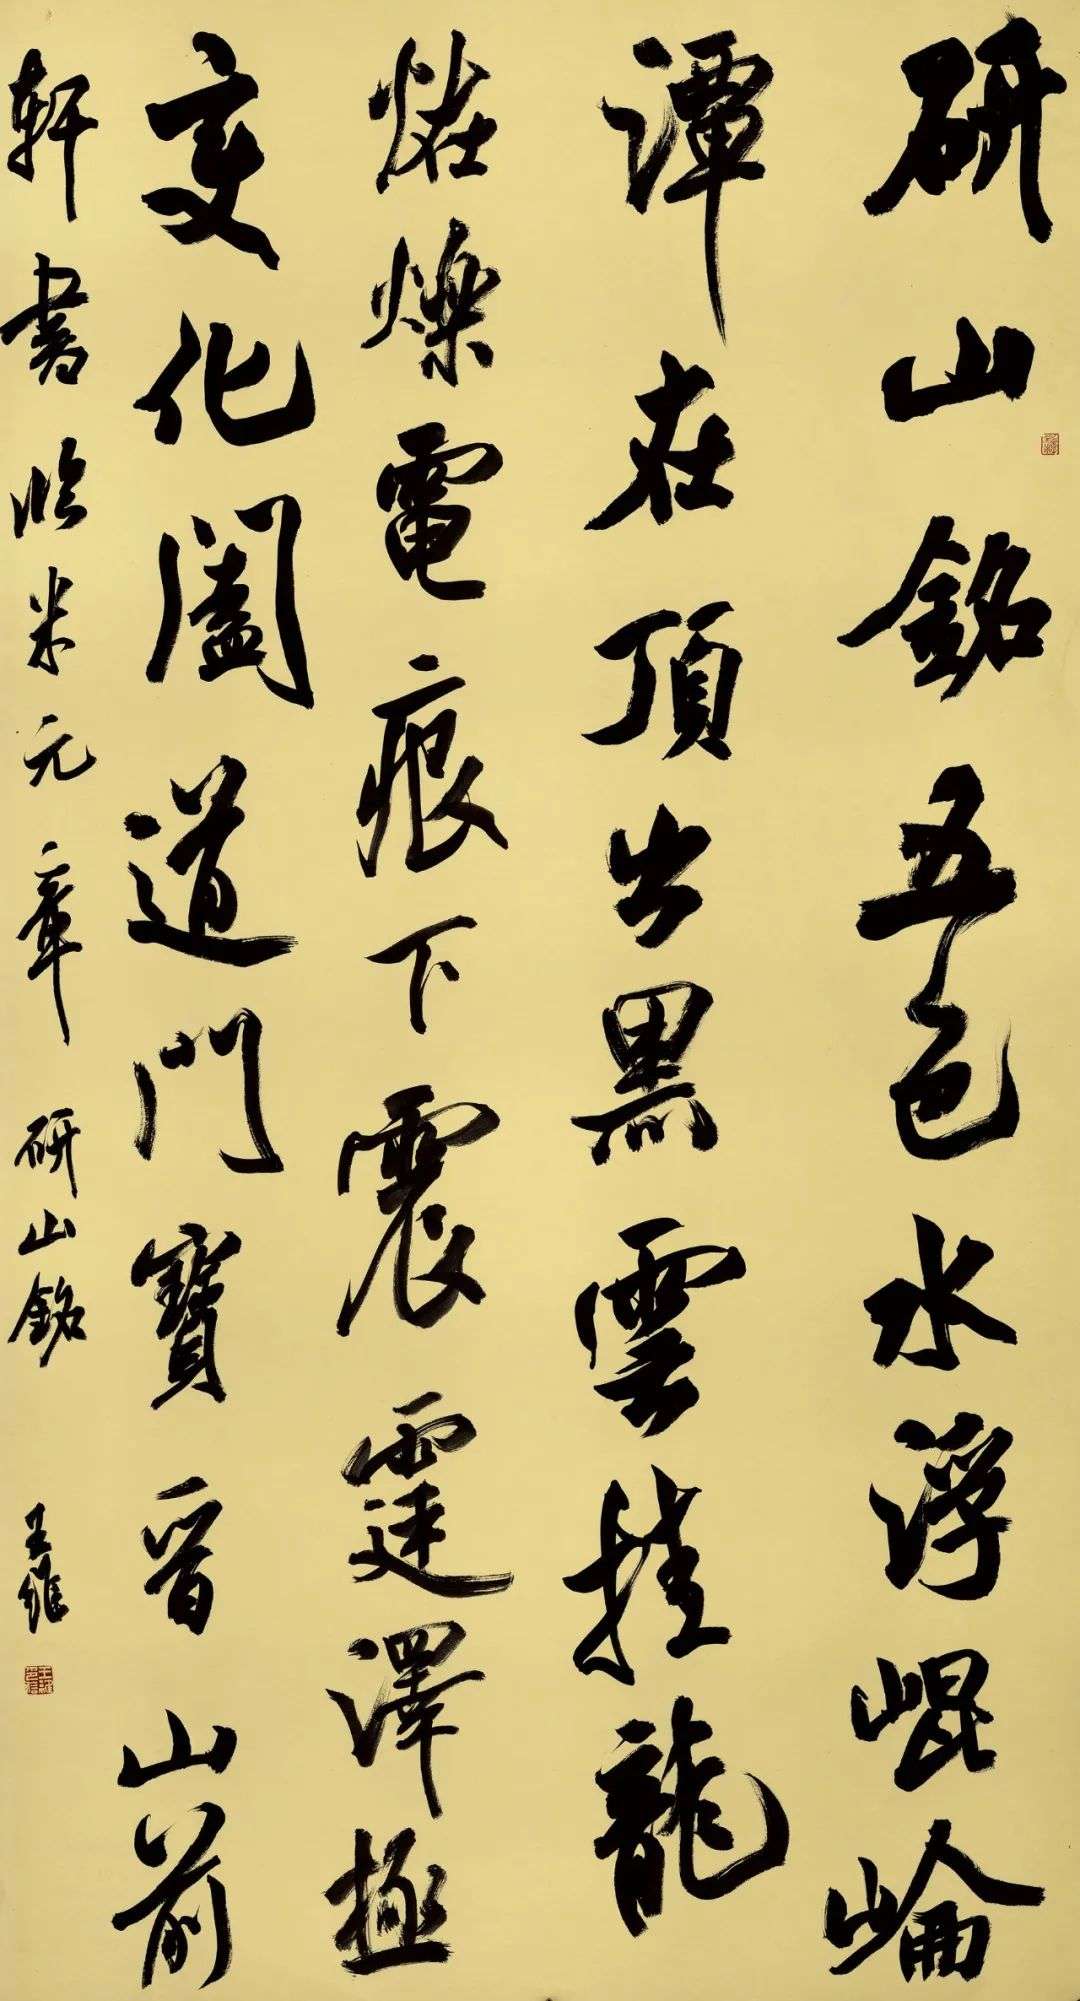 研山銘五色水浮崐崘
潭在頂出黑雲挂龍
怪爍電痕下震霆澤極
变化闔道門寶晉山前
軒書臨米元章研山銘王維